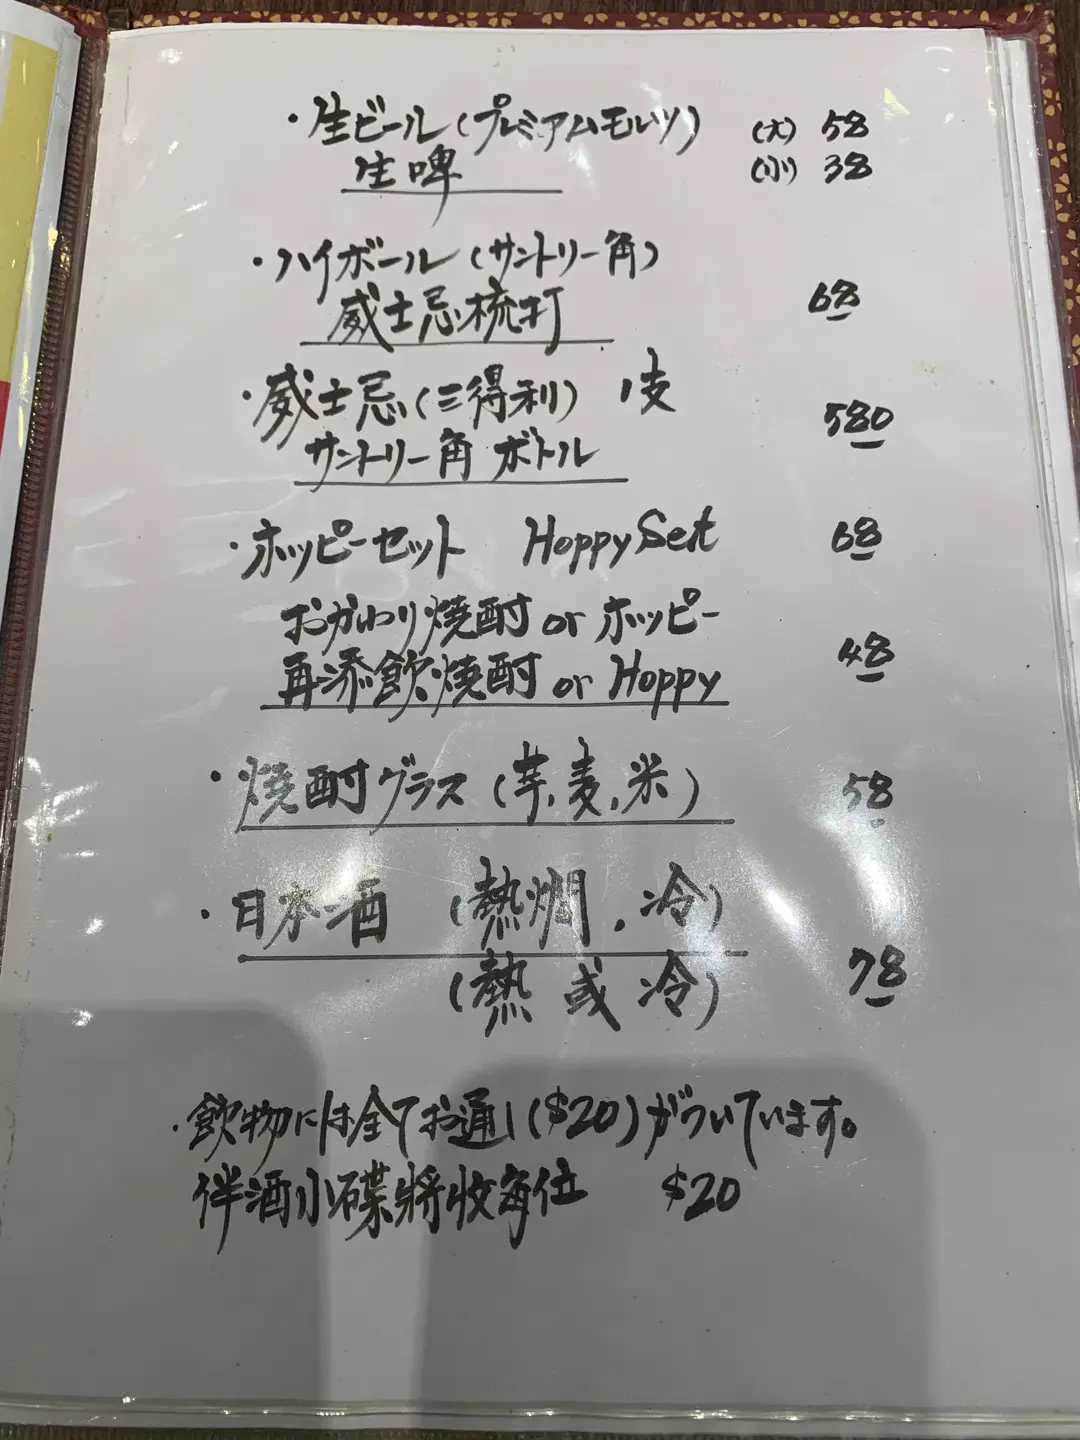 ・生ビール(プレミアムモルツ) (大) 58
生啤 (小) 38
・ハイボール(サントリー角)
威士忌梳打 68
・威士忌(三得利) 1支
サントリー角 ボトル 580
・ホッピーセット Hoppy Set 68
おかわり焼酎 or ホッピー
再添飲焼酎 or Hoppy 48
・焼酎グラス(芋,麦,米) 58
・日本酒 (熱燗,冷)
(熱 或 冷) 78
・飲物には全てお通し($20)がついています。
伴酒小碟將收每位 $20